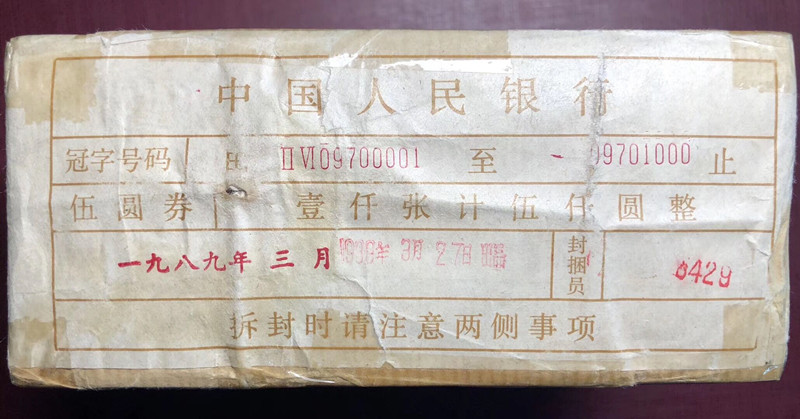 中国人民银行
冠字号码 由 ⅡⅥ09700001 至 09701000 止
伍圆券 壹仟张计伍仟圆整
一九八九年 三 月 1989年 3月 27日 封捆员 6429
拆封时请注意两侧事项